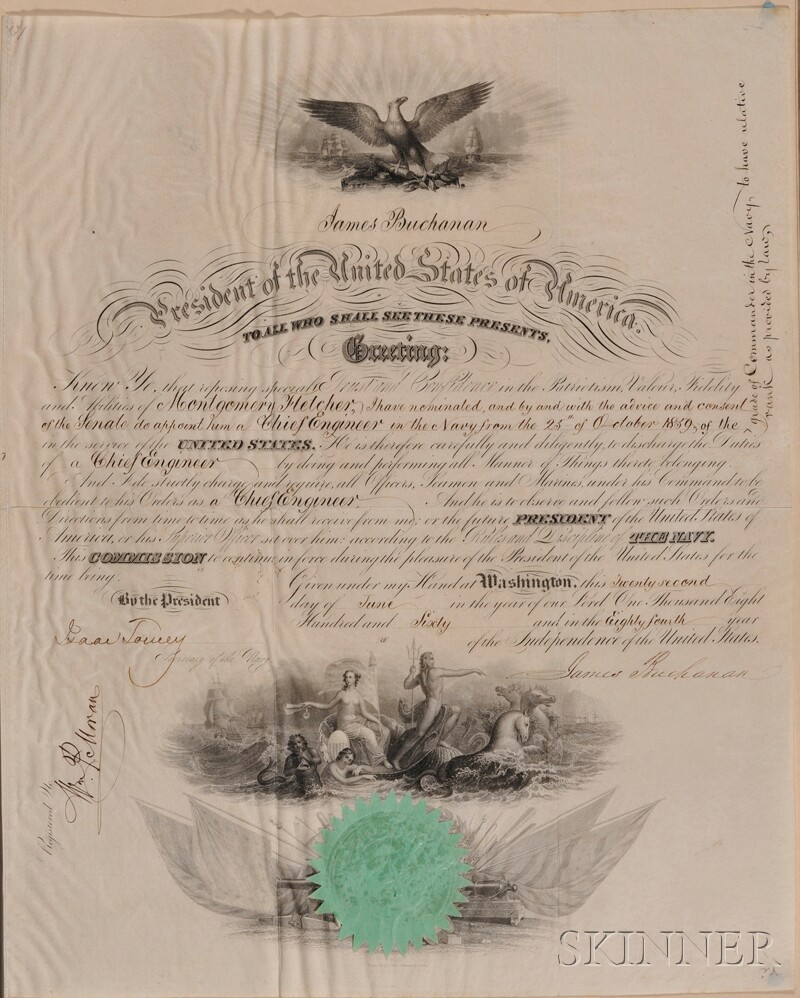 James Buchanan
President of the United States of America:
TO ALL WHO SHALL SEE THESE PRESENTS,
Greeting:
Know Ye, that reposing special Trust and Confidence in the Patriotism, Valour, Fidelity
and Abilities of Montgomery Fletcher, I have nominated, and by and with the advice and consent
of the Senate do appoint him a Chief Engineer in the Navy from the 25th of October 1859, of the
in the service of the UNITED STATES. He is therefore carefully and diligently, to discharge the Duties
of a Chief Engineer by doing and performing all Manner of Things thereto belonging.
And I do strictly charge and require, all Officers, Seamen and Marines, under his Command to be
obedient to his Orders as a Chief Engineer. And he is to observe and follow such Orders and
Directions from time to time as he shall receive from me; or the future PRESIDENT of the United States of
America, or his Superior Officer set over him: according to the Rules and Discipline of THE NAVY.
This COMMISSION to continue in force during the pleasure of the President of the United States for the
time being.
Given under my Hand at Washington, this Twenty second
By the President
day of June in the year of our Lord One Thousand Eight
Hundred and Sixty and in the Eighty fourth year
of the Independence of the United States.
Isaac Toucey
Secretary of the Navy
James Buchanan
grade of Commander in the Navy, to have relative
rank as provided by law,
Registered
Wm. P. Moran
SKINNER